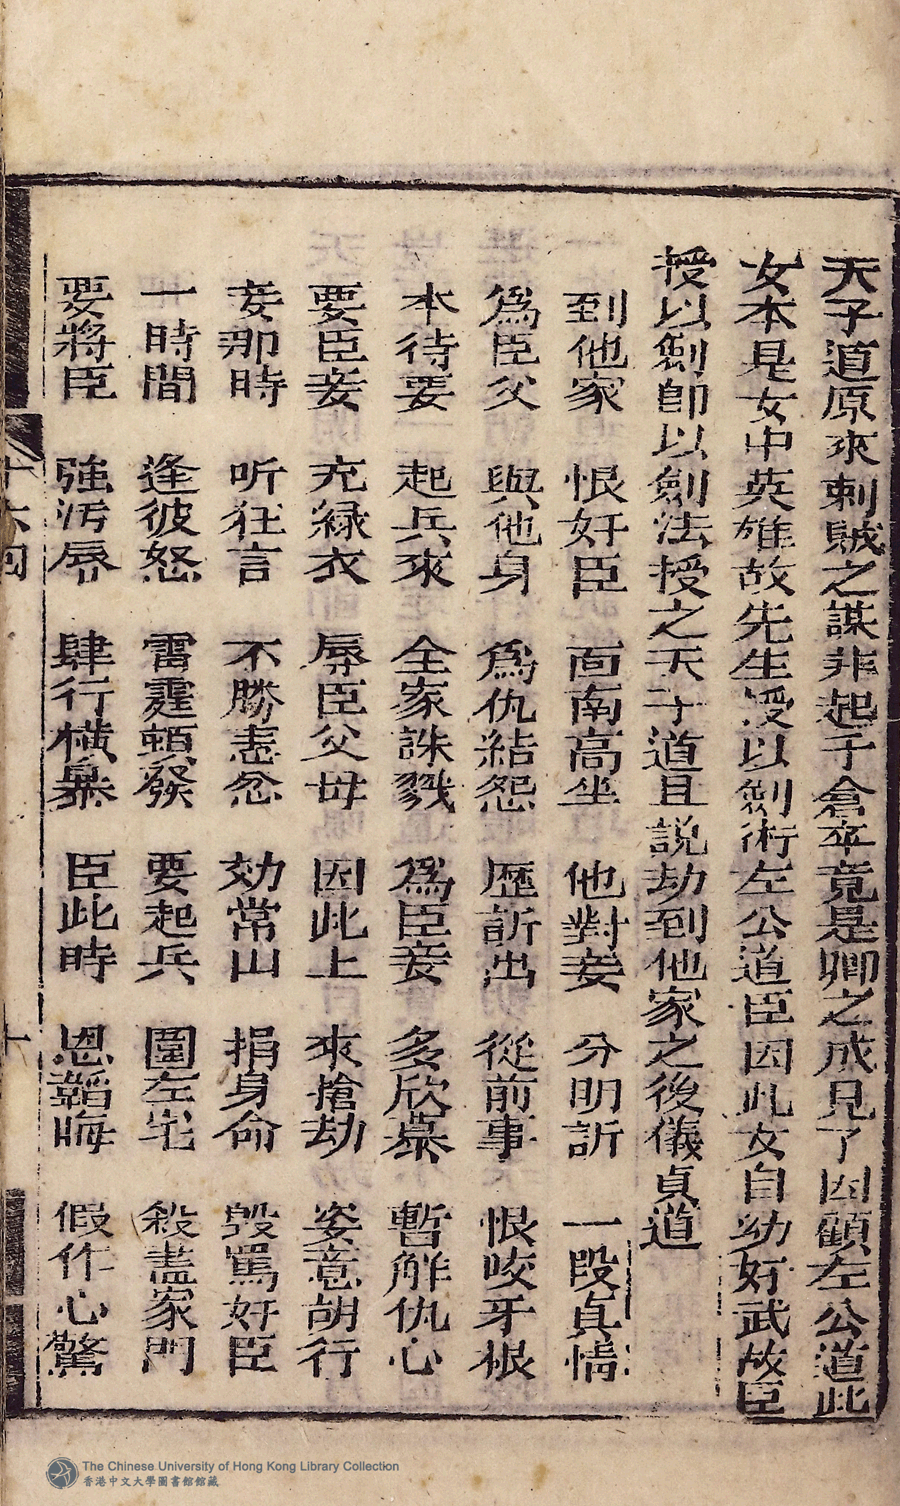 天子道原來刺賊之謀非起于倉卒竟是卿之成見了因顧左公道此
女本是女中英雄故先生授以劍術左公道臣因此女自幼好武故臣
授以劍即以劍法授之天子道且說劫到他家之後儀貞道
到他家　恨奸臣　面南高坐　他對妾　分明訴　一段貞情
爲臣父　與他身　爲仇結怨　歷訴出　從前事　恨咬牙根
本待要　起兵來　全家誅戮　爲臣妾　多欣慕　暫解仇心
要臣妾　充綠衣　辱臣父母　因此上　來搶劫　姿意胡行
妾那時　听狂言　不勝恚忿　効常山　捐身命　毀罵奸臣
一時間　逢彼怒　雷霆頓發　要起兵　圍左宅　殺盡家門
要將臣　強汚辱　肆行橫暴　臣此時　思韜晦　假作心驚
The Chinese University of Hong Kong Library Collection
香港中文大學圖書館館藏